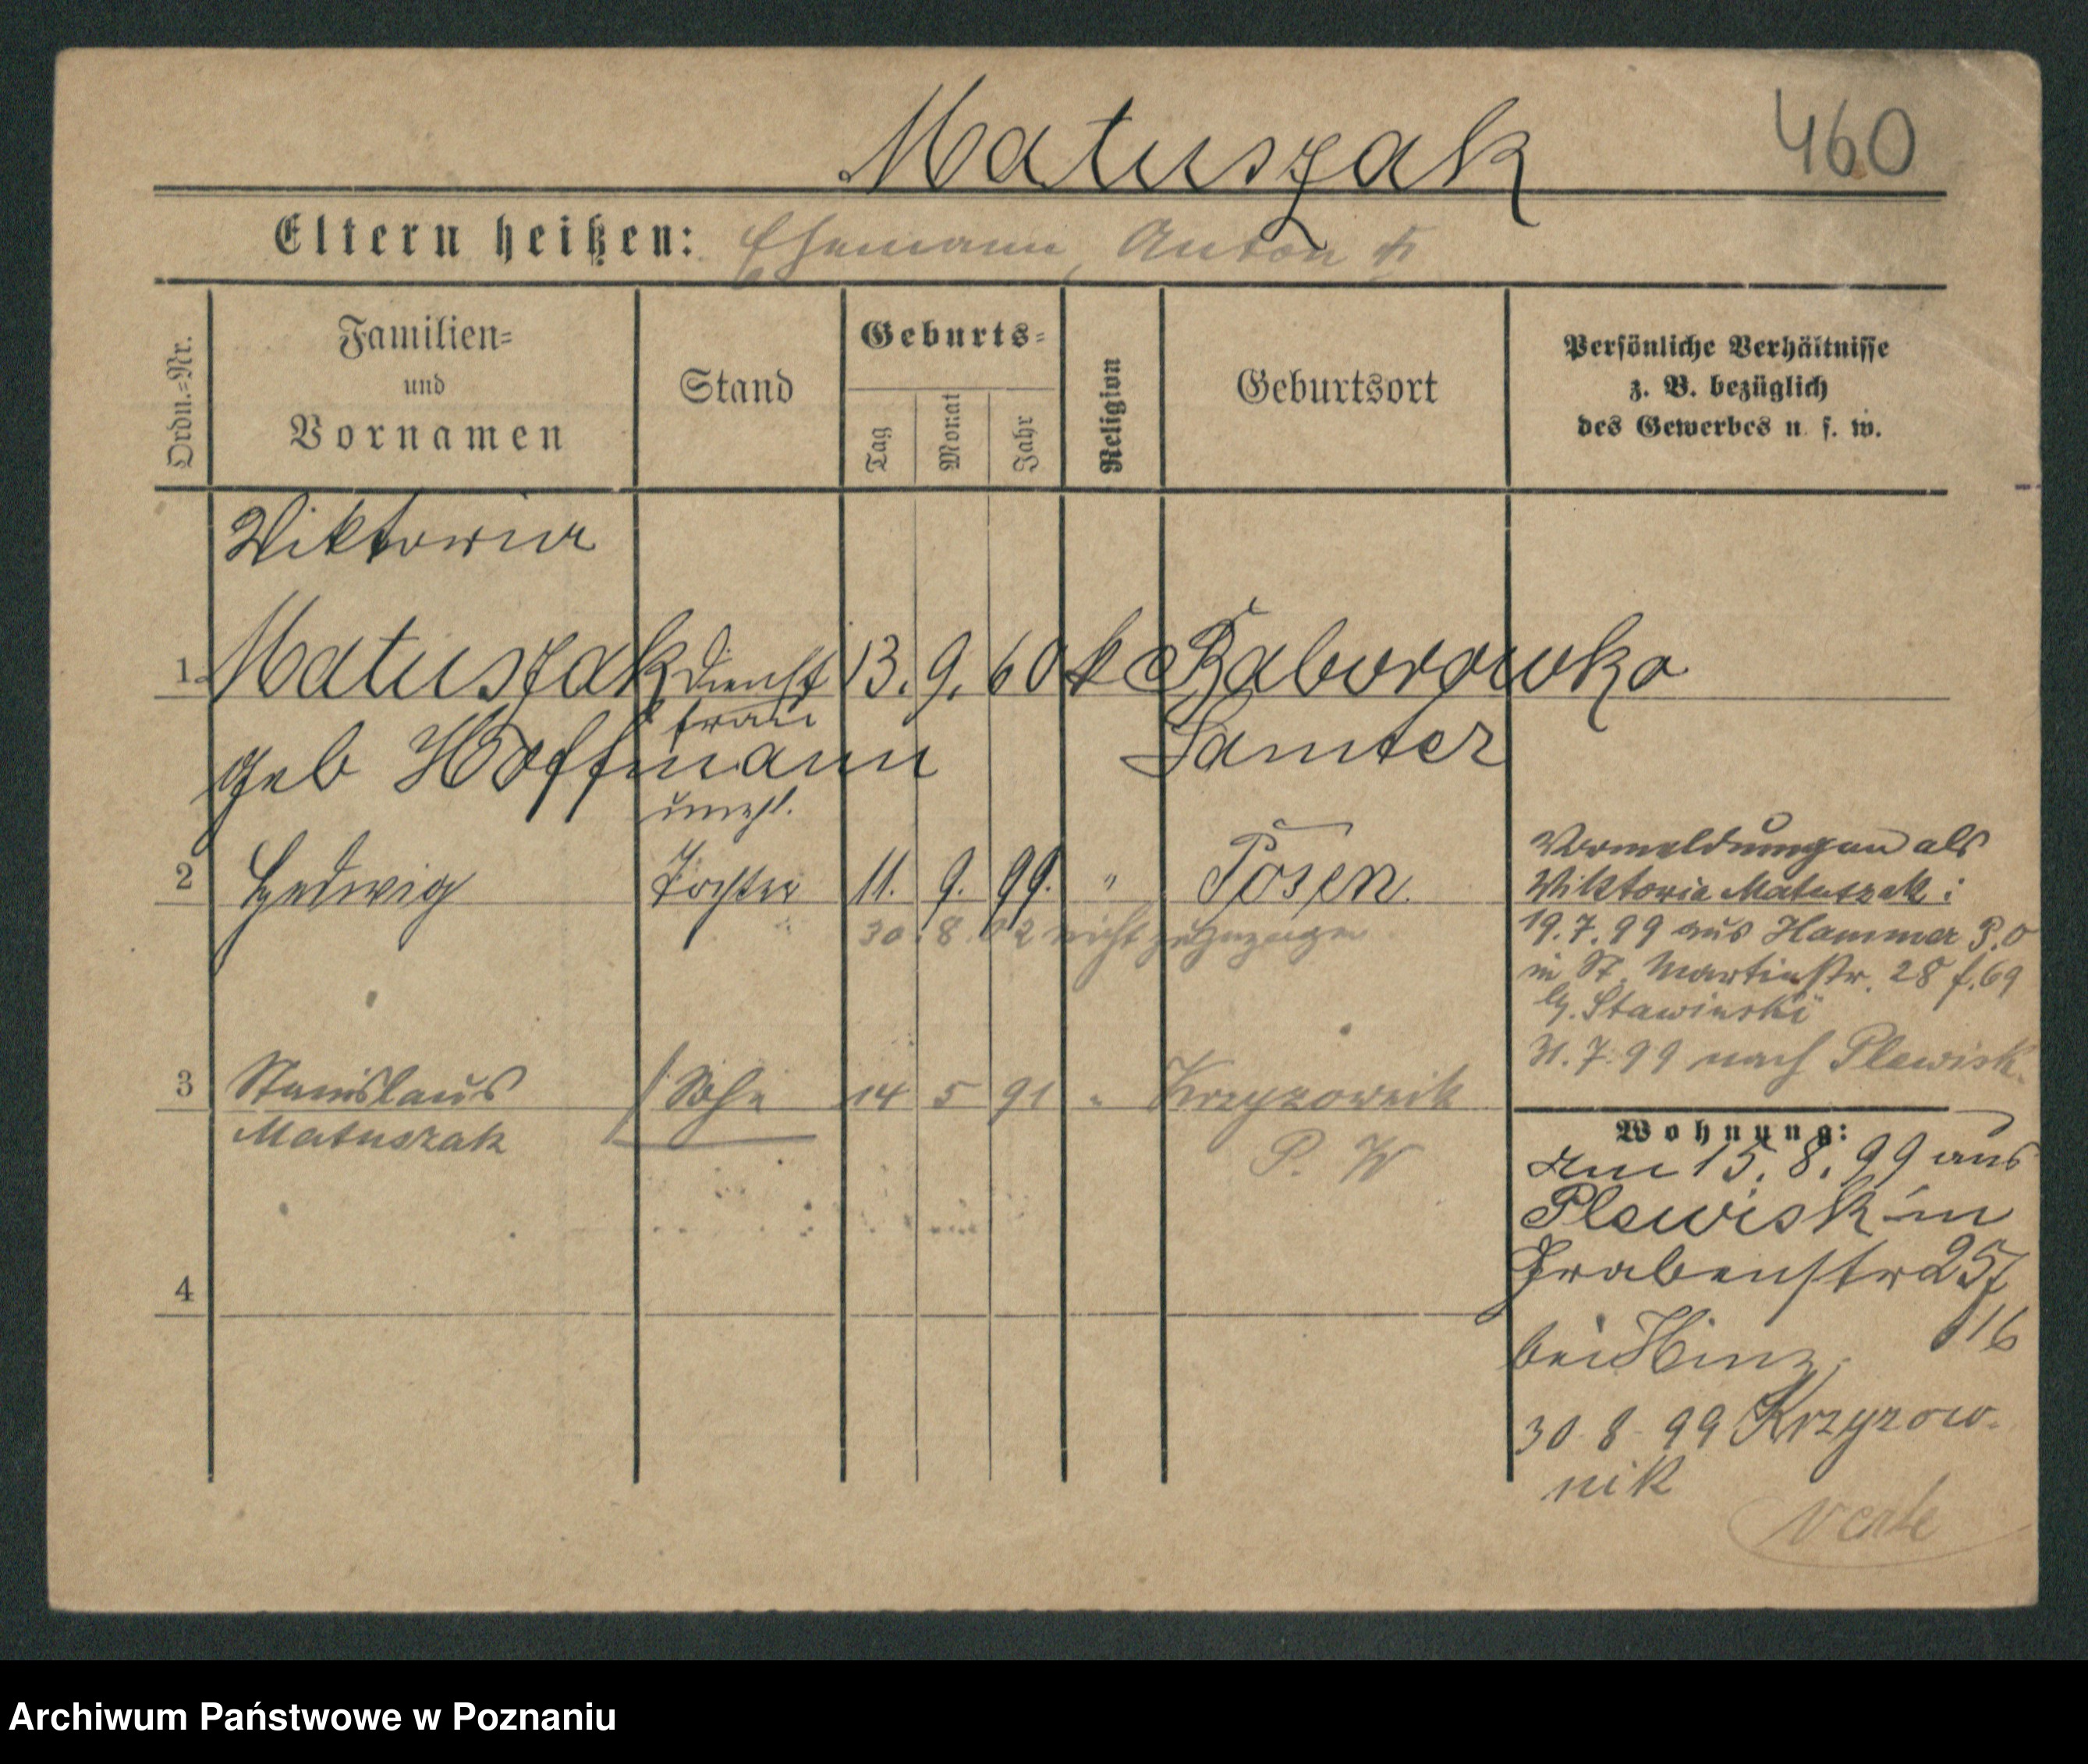 Matuszak 460
Eltern heißen: Ehemann, Anton
Ordn.=Nr.
Familien=
und
Vornamen
Stand
Geburts=
Tag
Monat
Jahr
Religion
Geburtsort
Persönliche Verhältnisse
z. B. bezüglich
des Gewerbes u. s. w.
Viktoria
1. Matuszak Dienst 13. 9. 60 k Baborowko
frau
geb Hoffmann Samter
unehl.
2 Hedwig Tochter 11. 9. 99. " Posen
30. 8. 02 nicht zugezogen
3 Stanislaus Sohn 14 5 91 " Krzyzownik
Matuszak P. W
4
Vormeldungen als
Viktoria Matuszak:
19.7.99 aus Hammer P.O
in St. Martinstr. 28 f. 69
b/. Stawinski
31.7.99 nach Plewisk.
Wohnung:
am 15. 8. 99 aus
Plewisk in
Grabenstr 25
16
bei Hinz
30 8 99 Krzyzow-
nik
verte
Archiwum Państwowe w Poznaniu